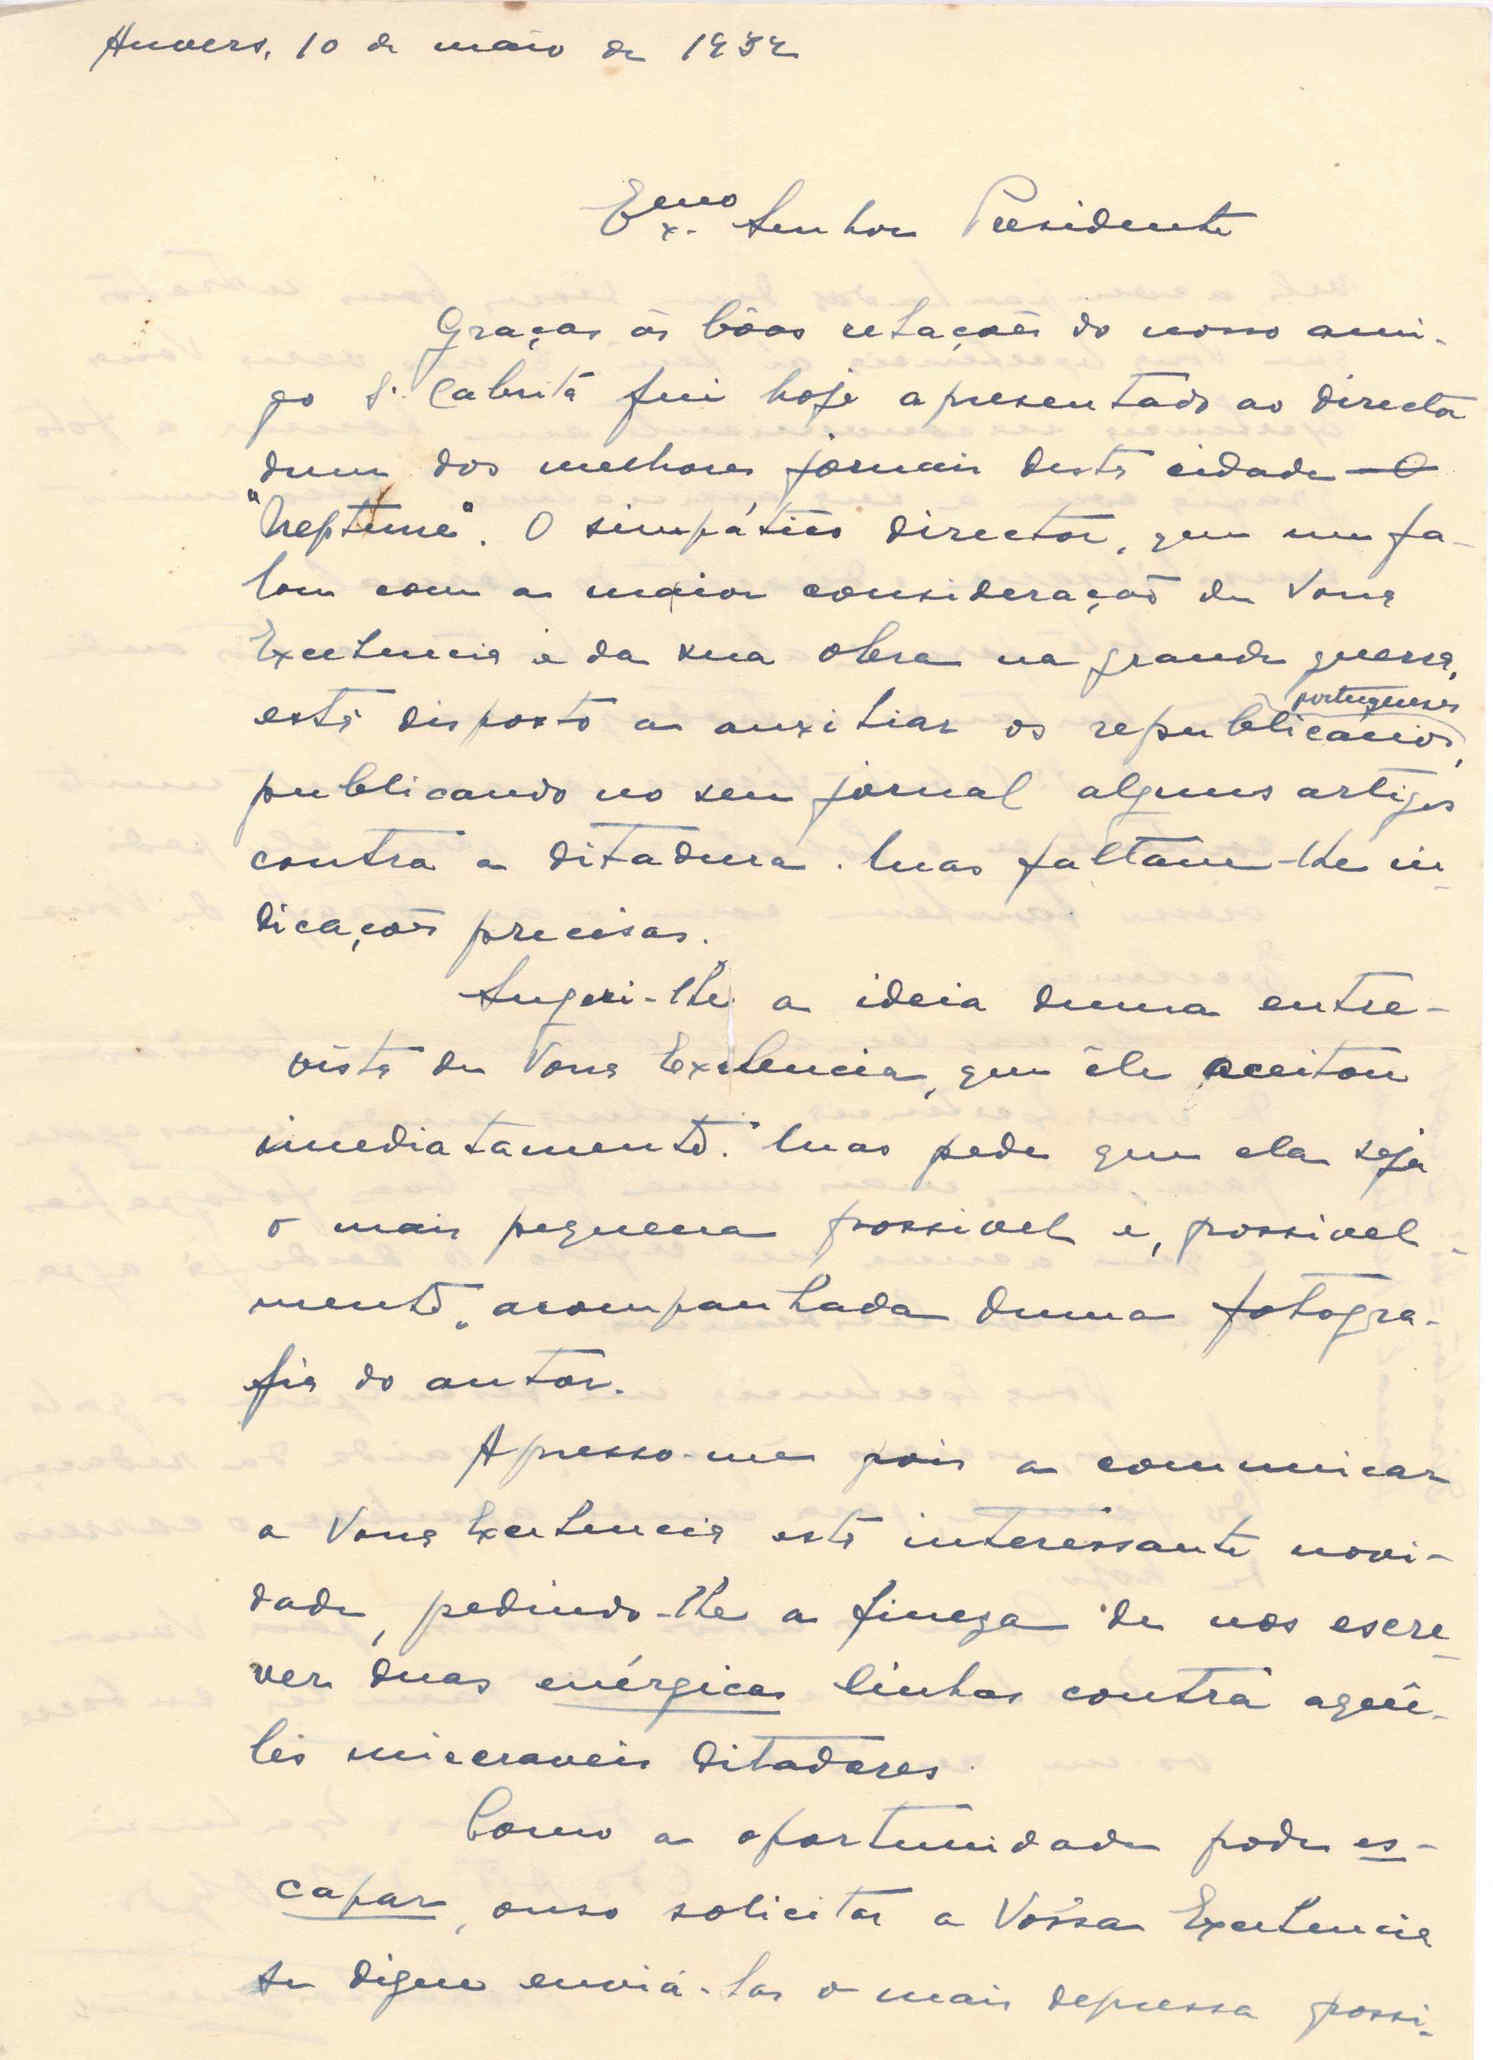 Anvers, 10 de maio de 1932
Exmo. Senhor Presidente
Graças ás bôas relações do nosso ami-
go Sr. Cabrita fui hoje apresentado ao director
dum dos melhores jornais desta cidade — O
"Neptune". O simpático director, que me fa-
lou com a maior consideração de Vossa
Excelencia e da sua obra na grande guerra,
está disposto a auxiliar os republicanos portugueses,
publicando no seu jornal alguns artigos
contra a ditadura. Mas faltam-lhe in-
dicações precisas.
Sugeri-lhe a ideia duma entre-
vista de Vossa Excelencia, que êle aceitou
imediatamente. Mas pede que ela seja
o mais pequena possivel e, possivel-
mente, acompanhada duma fotogra-
fia do autor.
Apresso-me pois a communicar
a Vossa Excelencia esta interessante novi-
dade, pedindo-lhe a fineza de nos escre-
ver duas enérgicas linhas contra aquê-
les miseraveis ditadores.
Como a oportunidade pode es-
capar, ouso solicitar a Vossa Excelencia
se digne enviá-las o mais depressa possi-